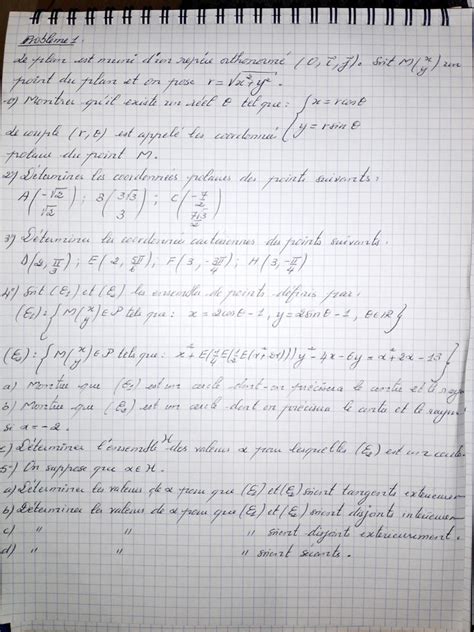 Problème 1:
Le plan est muni d'un repère orthonormé (O, i⃗, j⃗). Soit M(x y) un
point du plan et on pose r = √x²+y².
1°) Montrer qu'il existe un réel θ tel que: { x = r cosθ
y = r sinθ
Le couple (r, θ) est appelé les coordonnées
polaires du point M.
2°) Déterminer les coordonnées polaires des points suivants:
A(-√2 √2) ; B(3√3 3) ; C(
3°) Déterminer les coordonnées cartésiennes des points suivants:
D(2, π/3) ; E(2, 5π/6), F(3, -3π/4) ; H(3, -π/4)
4°) Soit (E₁) et (E₂) les ensembles de points définis par:
(E₁): { M(x y) ∈ P tels que: x = 2cosθ - 1, y = 2sinθ - 1, θ ∈ ℝ }
(E₂): { M(x y) ∈ P tels que: y² - 4x - 6y = α² + 2α - 13 }
a) Montrer que (E₁) est un cercle dont on précisera le centre et le rayon
b) Montrer que (E₂) est un cercle dont on précisera le centre et le rayon
si α = -2.
c) Déterminer l'ensemble H des valeurs α pour lesquelles (E₂) est un cercle
5°) On suppose que α ∈ H.
a) Déterminer les valeurs de α pour que (E₁) et (E₂) soient tangents extérieurement
b) Déterminer les valeurs de α pour que (E₁) et (E₂) soient disjoints intérieurement
c) " " " soient disjoints extérieurement.
d) " " " soient sécants.